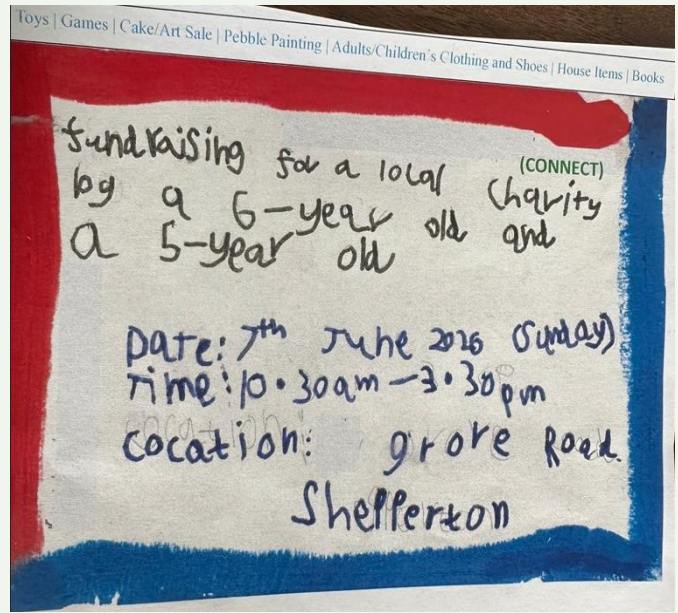 Toys | Games | Cake/Art Sale | Pebble Painting | Adults/Children's Clothing and Shoes | House Items | Books
(CONNECT)
fundraising for a local charity
by a 6-year old and
a 5-year old
Date: 7th June 2026 (Sunday)
Time: 10.30am-3.30pm
Location: grove Road.
Shepperton